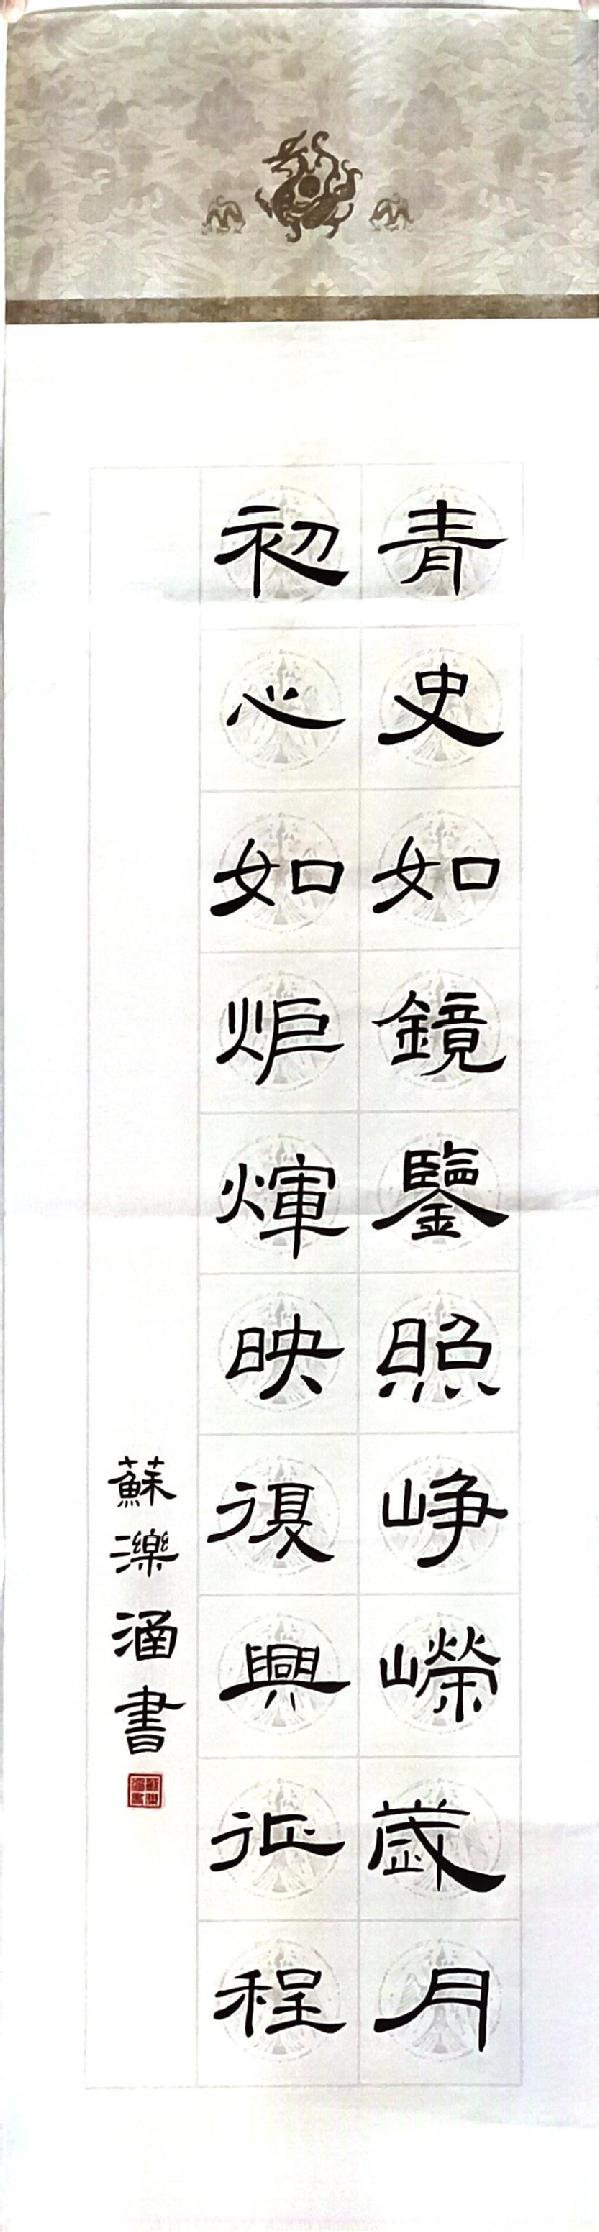 青史如鏡鑒照峥嶸歲月
初心如炬煇映復興征程
蘇濼涵書